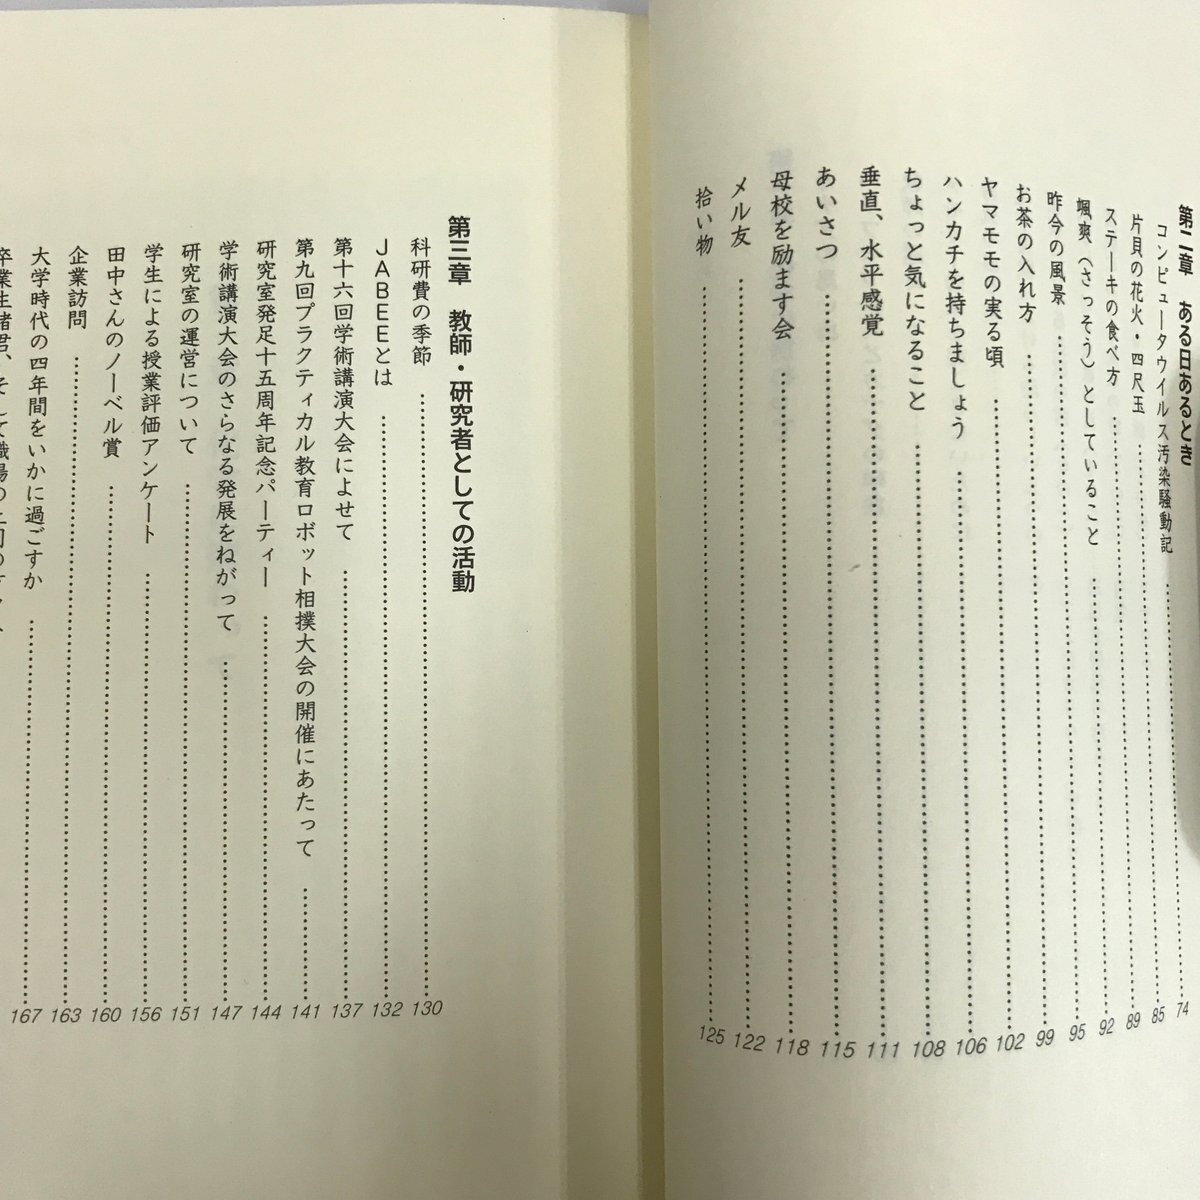 第二章　ある日あるとき
コンピュータウイルス汚染騒動記 ……… 74
片貝の花火・四尺玉 ……… 85
ステーキの食べ方 ……… 89
颯爽（さっそう）としていること ……… 92
昨今の風景 ……… 95
お茶の入れ方 ……… 99
ヤマモモの実る頃 ……… 102
ハンカチを持ちましょう ……… 106
ちょっと気になること ……… 108
垂直、水平感覚 ……… 111
あいさつ ……… 115
母校を励ます会 ……… 118
メル友 ……… 122
拾い物 ……… 125
第三章　教師・研究者としての活動
科研費の季節 ……… 130
ＪＡＢＥＥとは ……… 132
第十六回学術講演大会によせて ……… 137
第九回プラクティカル教育ロボット相撲大会の開催にあたって ……… 141
研究室発足十五周年記念パーティー ……… 144
学術講演大会のさらなる発展をねがって ……… 147
研究室の運営について ……… 151
学生による授業評価アンケート ……… 156
田中さんのノーベル賞 ……… 160
企業訪問 ……… 163
大学時代の四年間をいかに過ごすか ……… 167
卒業生諸君、そして職場の上司の